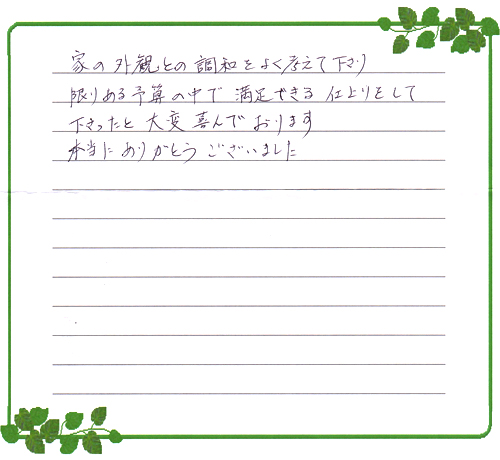 家の外観との調和をよく考えて下さり
限りある予算の中で満足できる仕上りをして
下さったと大変喜んでおります
本当にありがとうございました